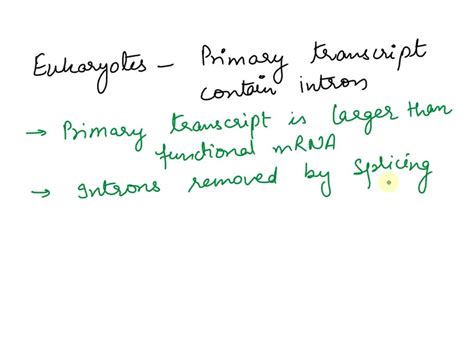 Eukaryotes - Primary transcript
contain intron
→ Primary transcript is larger than
functional mRNA
→ Introns removed by Splicing